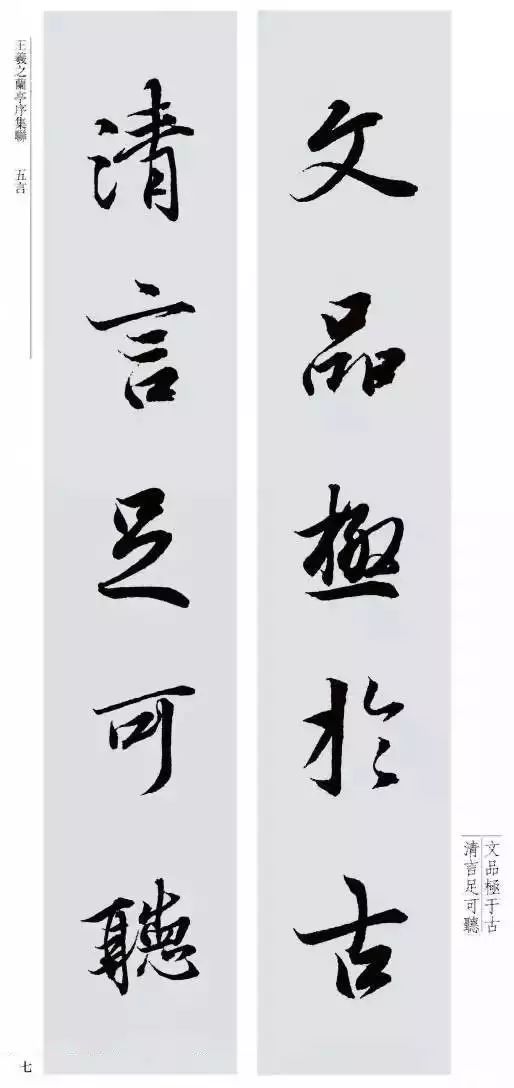 文品極於古
清言足可聽
文品極于古
清言足可聽
王羲之蘭亭序集聯 五言
七